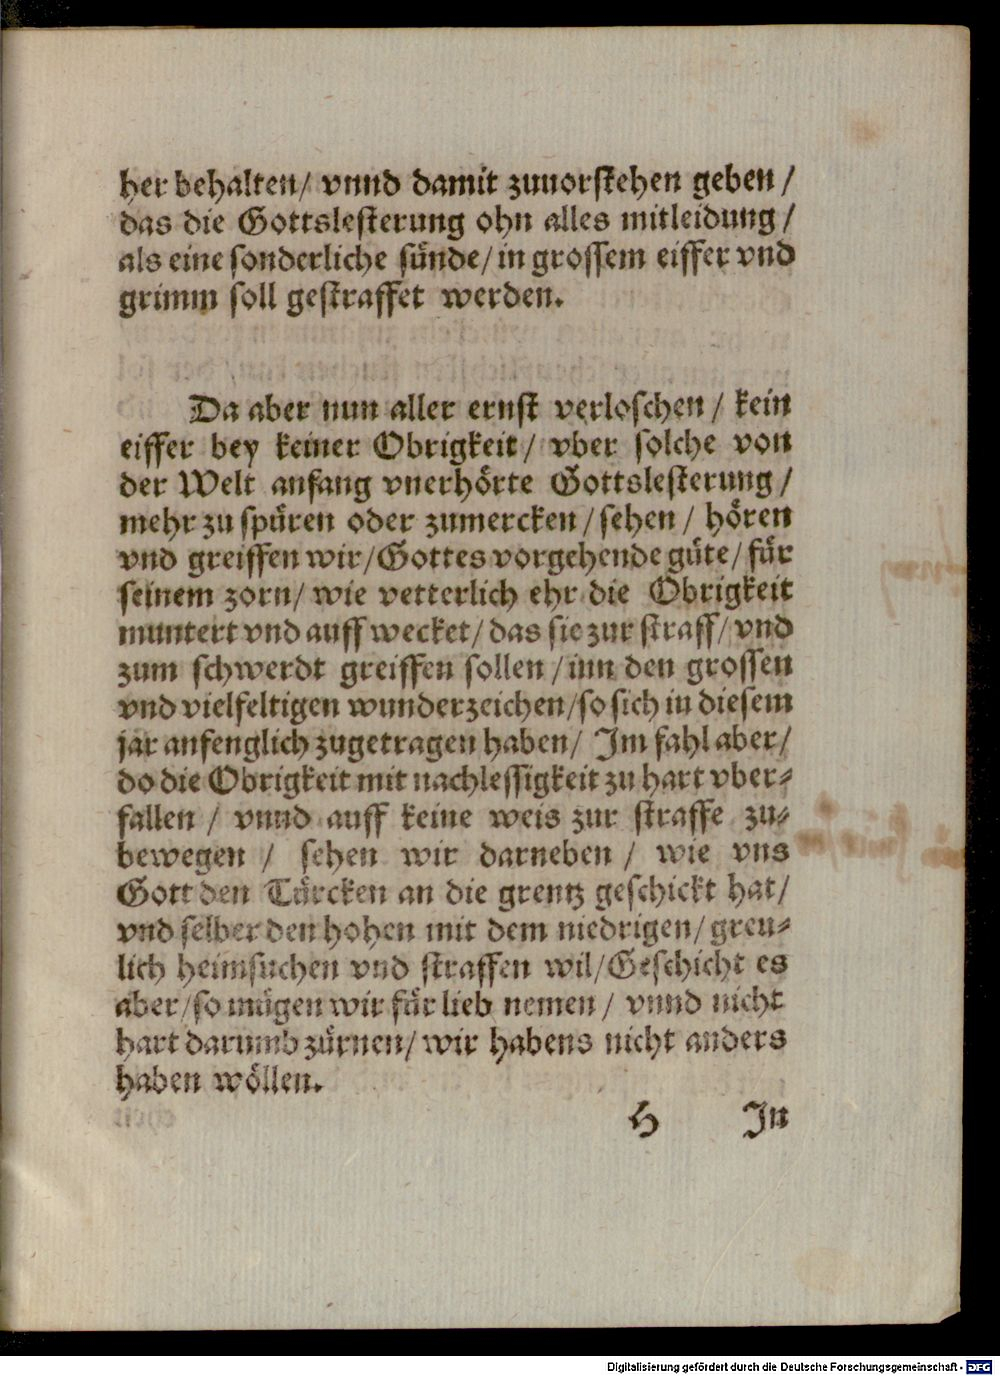 her behalten/ vnnd damit zuuorstehen geben /
das die Gottslesterung ohn alles mitleidung /
als eine sonderliche sünde/ in grossem eiffer vnd
grimm soll gestraffet werden.
Da aber nun aller ernst verloschen / kein
eiffer bey keiner Obrigkeit / vber solche von
der Welt anfang vnerhörte Gottslesterung /
mehr zu spüren oder zumercken / sehen / hören
vnd greiffen wir / Gottes vorgehende güte / für
seinem zorn / wie vetterlich ehr die Obrigkeit
muntert vnd auff wecket / das sie zur straff / vnd
zum schwerdt greiffen sollen / inn den grossen
vnd vielfeltigen wunderzeichen / so sich in diesem
jar anfenglich zugetragen haben / Im fahl aber /
do die Obrigkeit mit nachlessigkeit zu hart vber-
fallen / vnnd auff keine weis zur straffe zu-
bewegen / sehen wir darneben / wie vns
Gott den Türcken an die grentz geschickt hat /
vnd selber den hohen mit dem niedrigen / greu-
lich heimsuchen vnd straffen wil / Geschicht es
aber / so mügen wir für lieb nemen / vnnd nicht
hart darumb zürnen / wir habens nicht anders
haben wöllen.
H In
Digitalisierung gefördert durch die Deutsche Forschungsgemeinschaft - DFG